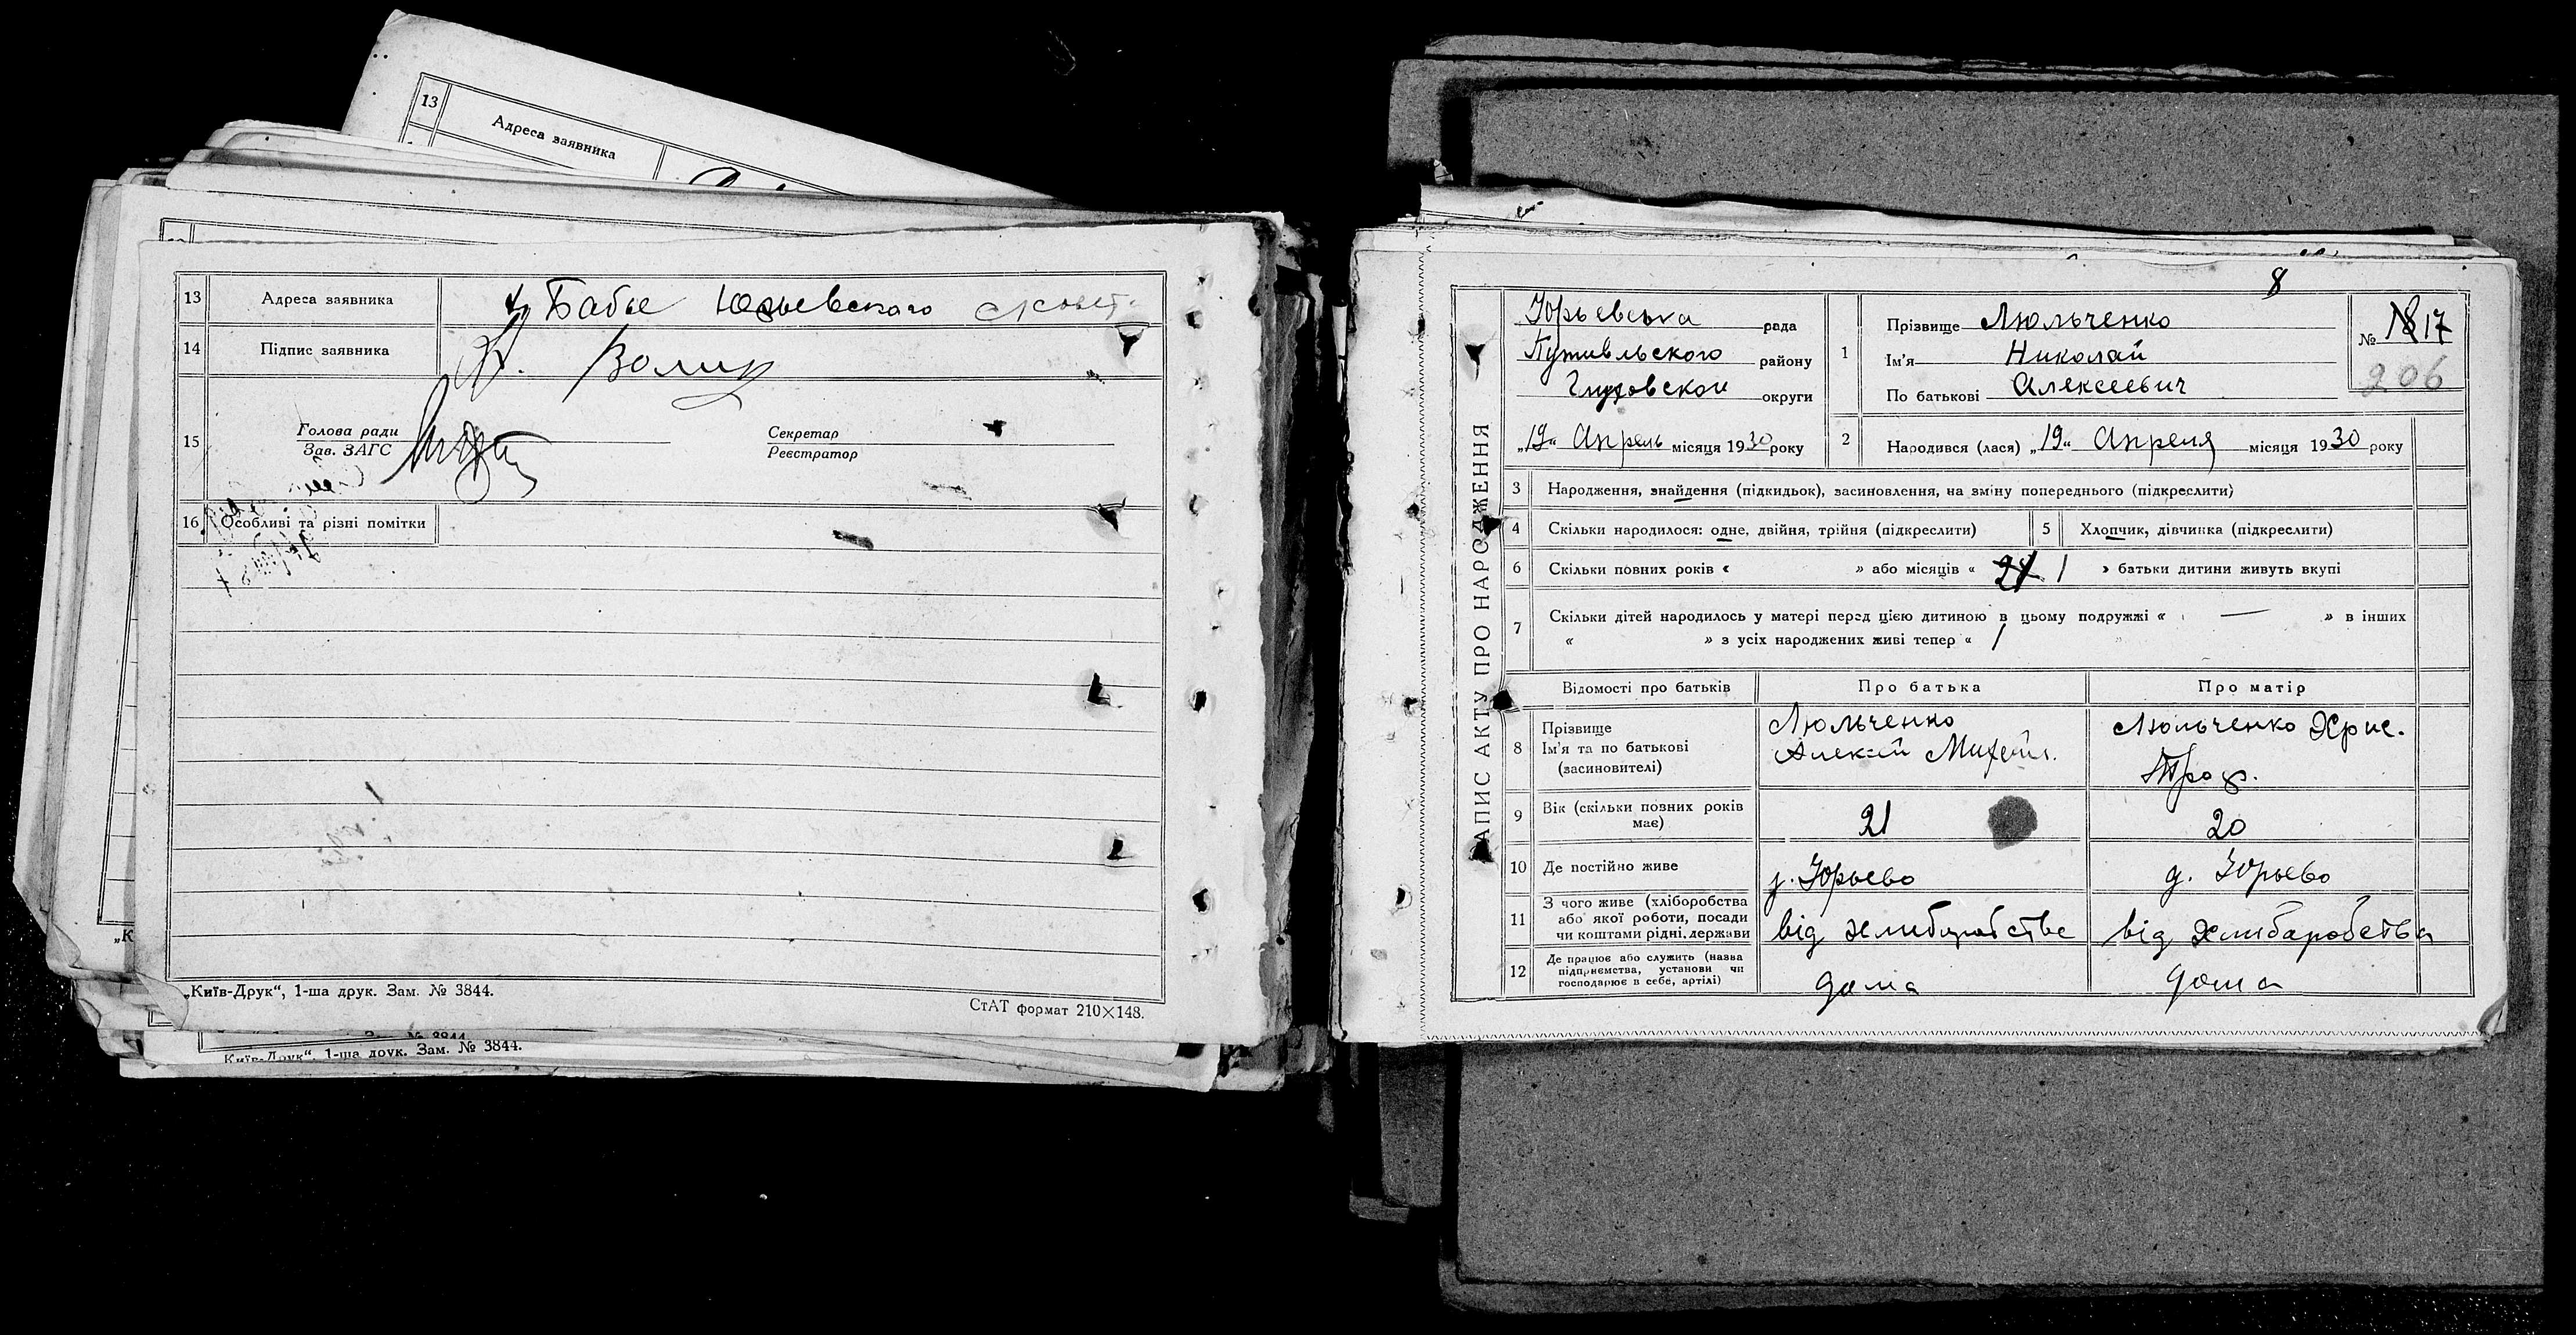 13
Адреса заявника
13 Адреса заявника Бабье Юрьевского
14 Підпис заявника Волик
15 Голова ради Секретар
Зав. ЗАГС Реєстратор
16 Особливі та різні помітки
„Київ-Друк“, 1-ша друк. Зам. № 3844.
СтАТ формат 210×148.
Київ-Друк“, 1-ша друк. Зам. № 3844.
8
ЗАПИС АКТУ ПРО НАРОДЖЕННЯ
Юрьевська рада
Путивльского району
Глуховской округи
„19“ Апрель місяця 1930 року
1 Прізвище Люльченко
Ім'я Николай
По батькові Алексеевич
№ 18 17
206
2 Народився (лася) „19“ Апреля місяця 1930 року
3 Народження, знайдення (підкидьок), засиновлення, на зміну попереднього (підкреслити)
4 Скільки народилося: одне, двійня, трійня (підкреслити) 5 Хлопчик, дівчинка (підкреслити)
6 Скільки повних років « » або місяців « 1 » батьки дитини живуть вкупі
7 Скільки дітей народилось у матері перед цією дитиною в цьому подружжі « — » в інших
« » з усіх народжених живі тепер « 1 »
Відомості про батьків Про батька Про матір
8 Прізвище
Ім'я та по батькові
(засиновителі)
Люльченко
Алексей
Люльченко Хрис.
Троф.
9 Вік (скільки повних років має) 21 20
10 Де постійно живе Юрьево д. Юрьево
11 З чого живе (хліборобства
або якої роботи, посади
чи коштами рідні, держави
від хлиборобстве від хлибаробства
12 Де працює або служить (назва
підприємства, установи чи
господарює в себе, артілі)
дома дома